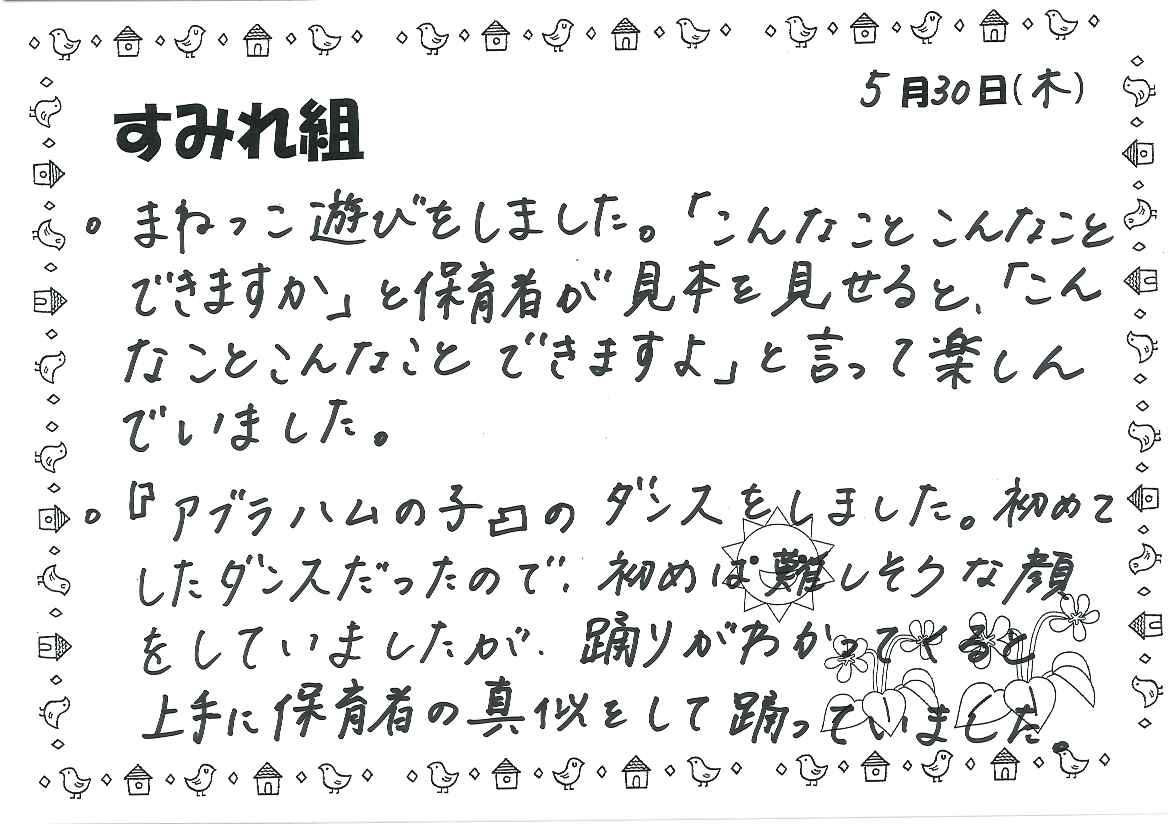 5月30日(木)
すみれ組
。まねっこ遊びをしました。「こんなこと こんなこと
できますか」と保育者が見本を見せると、「こん
なこと こんなこと できますよ」と言って楽しん
でいました。
。『アブラハムの子』の ダンスをしました。初めて
したダンスだったので、初めは難しそうな顔
をしていましたが、踊りがわかってくると
上手に保育者の真似をして踊っていました。